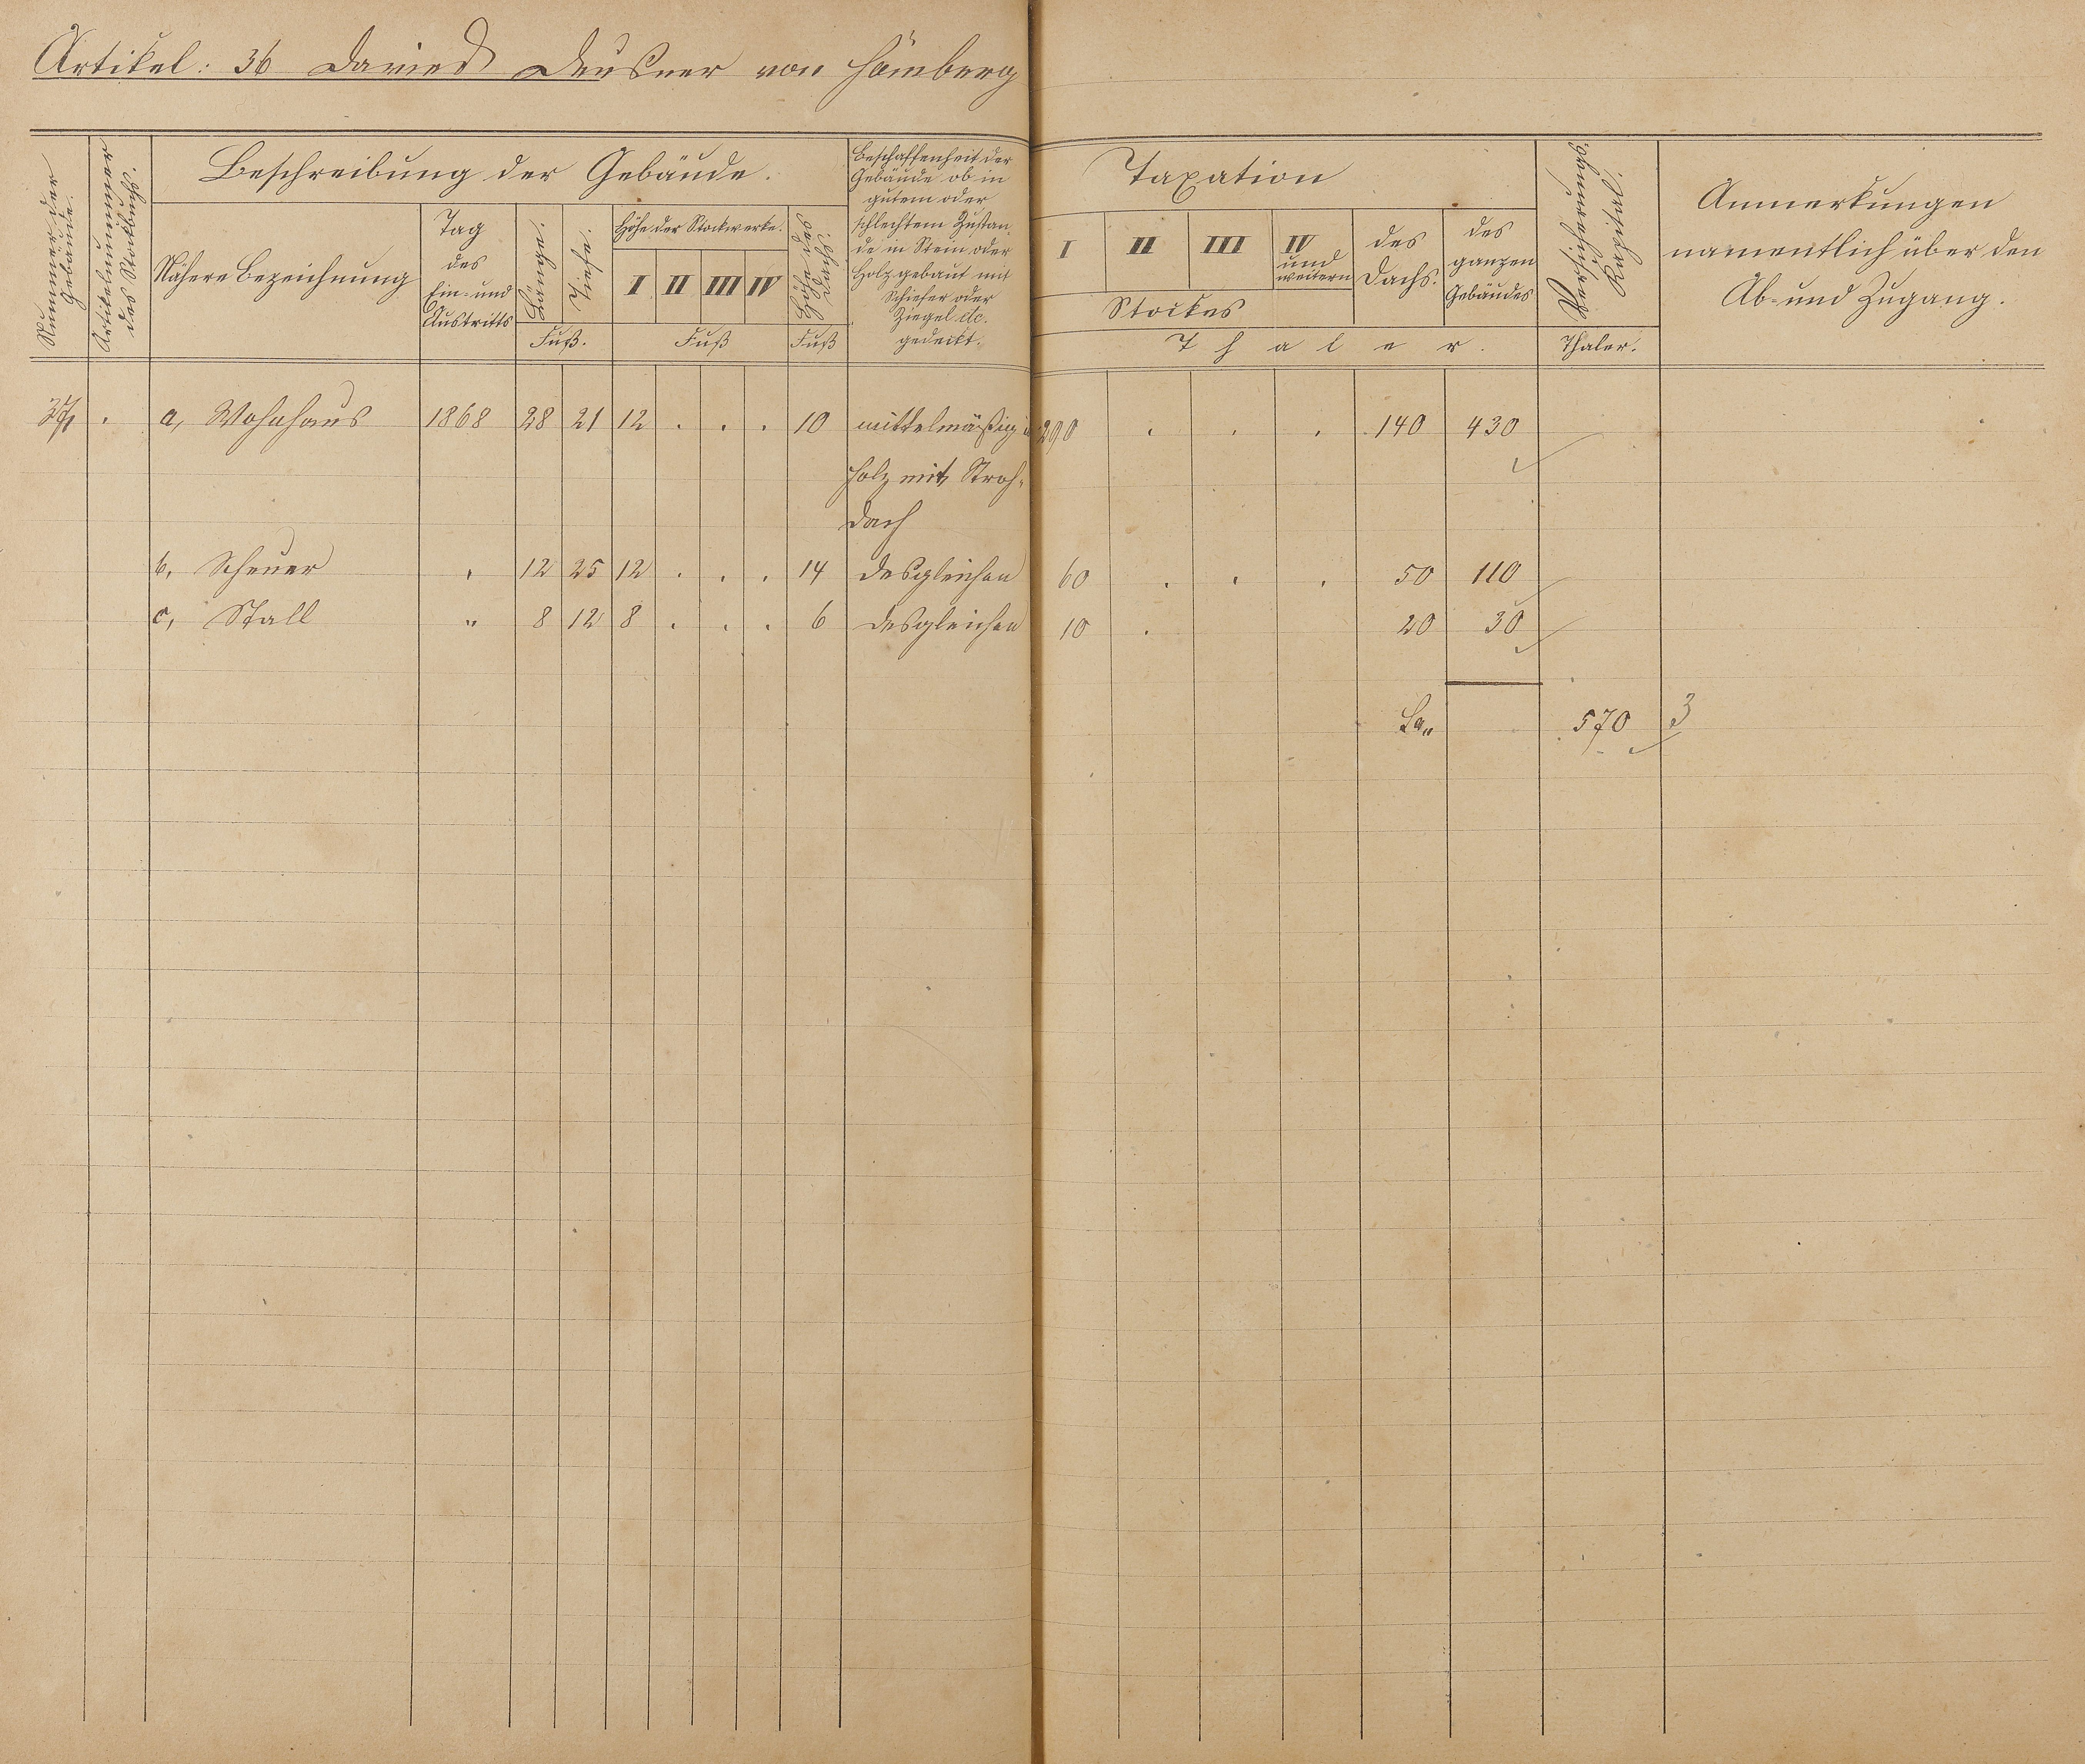 Artikel: 36 David Deusner von Hömberg
Nummer der Gebäude.
Artikelnummer des Stockbuchs.
Beschreibung der Gebäude.
Nähere Bezeichnung
Tag
des
Ein- und
Austritts
Länge.
Tiefe.
Fuß.
Höhe der Stockwerke.
I II III IV
Fuß
Höhe des Dachs.
Fuß
Beschaffenheit der
Gebäude ob in
gutem oder
schlechtem Zustan-
de in Stein oder
Holz gebaut mit
Schiefer oder
Ziegel etc.
gedeckt.
Taxation
I II III IV
und
weitern
Stockes
des
Dachs.
des
ganzen
Gebäudes
Thaler.
Versicherungs-
Kapital.
Thaler.
Anmerkungen
namentlich über den
Ab- und Zugang.
a, Wohnhaus 1868 28 21 12 . . . 10 mittelmäßig in 290 . . . 140 430
Holz mit Stroh-
dach
b, Scheuer " 12 25 12 . . . 14 desgleichen 60 . . . 50 110
c, Stall " 8 12 8 . . . 6 desgleichen 10 . 20 30
Sa,, 570 3